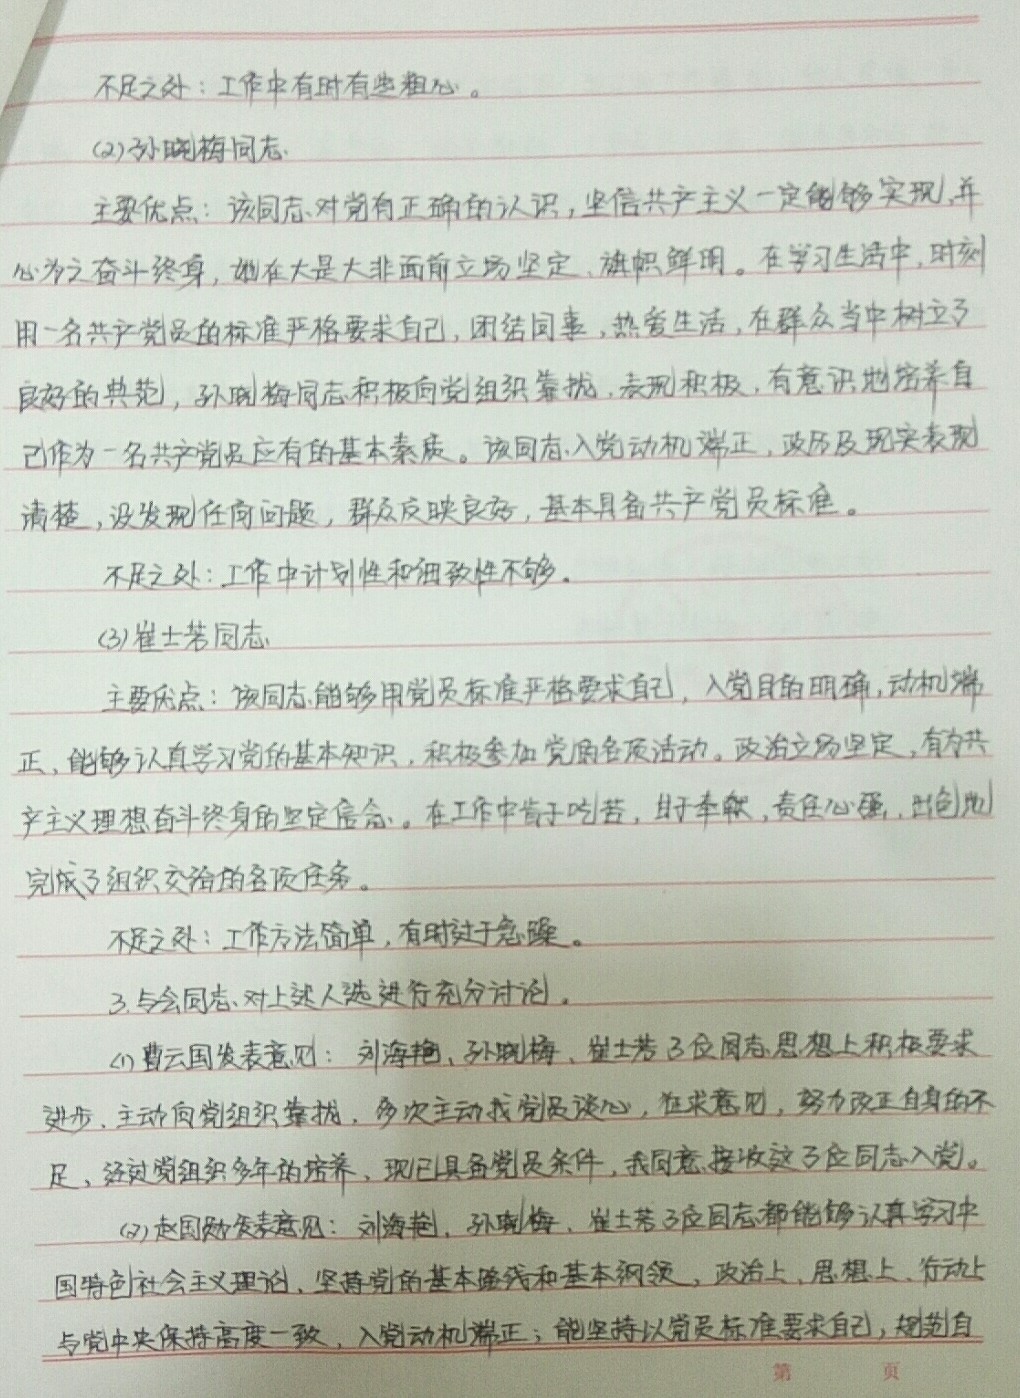 不足之处：工作中有时有些粗心。
(2)孙晓梅同志
主要优点：该同志对党有正确的认识，坚信共产主义一定能够实现，并
心为之奋斗终身，她在大是大非面前立场坚定、旗帜鲜明。在学习生活中，时刻
用一名共产党员的标准严格要求自己，团结同事，热爱生活，在群众当中树立了
良好的典范，孙晓梅同志积极向党组织靠拢，表现积极，有意识地培养自
己作为一名共产党员应有的基本素质。该同志入党动机端正，政历及现实表现
清楚，没发现任何问题，群众反映良好，基本具备共产党员标准。
不足之处：工作中计划性和细致性不够。
(3)崔士芳同志
主要优点：该同志能够用党员标准严格要求自己，入党目的明确，动机端
正，能够认真学习党的基本知识，积极参加党的各项活动。政治立场坚定，有为共
产主义理想奋斗终身的坚定信念。在工作中肯于吃苦，甘于奉献，责任心强，出色地
完成了组织交给的各项任务。
不足之处：工作方法简单，有时过于急躁。
3.与会同志对上述人选进行充分讨论。
(1)曹云国发表意见：刘海艳、孙晓梅、崔士芳3位同志思想上积极要求
进步、主动向党组织靠拢，多次主动找党员谈心，征求意见，努力改正自身的不
足，经过党组织多年的培养，现已具备党员条件，我同意接收这3位同志入党。
(2)赵国勋发表意见：刘海艳、孙晓梅、崔士芳3位同志都能够认真学习中
国特色社会主义理论，坚持党的基本路线和基本纲领，政治上、思想上、行动上
与党中央保持高度一致，入党动机端正；能坚持以党员标准要求自己，规范自
第 页